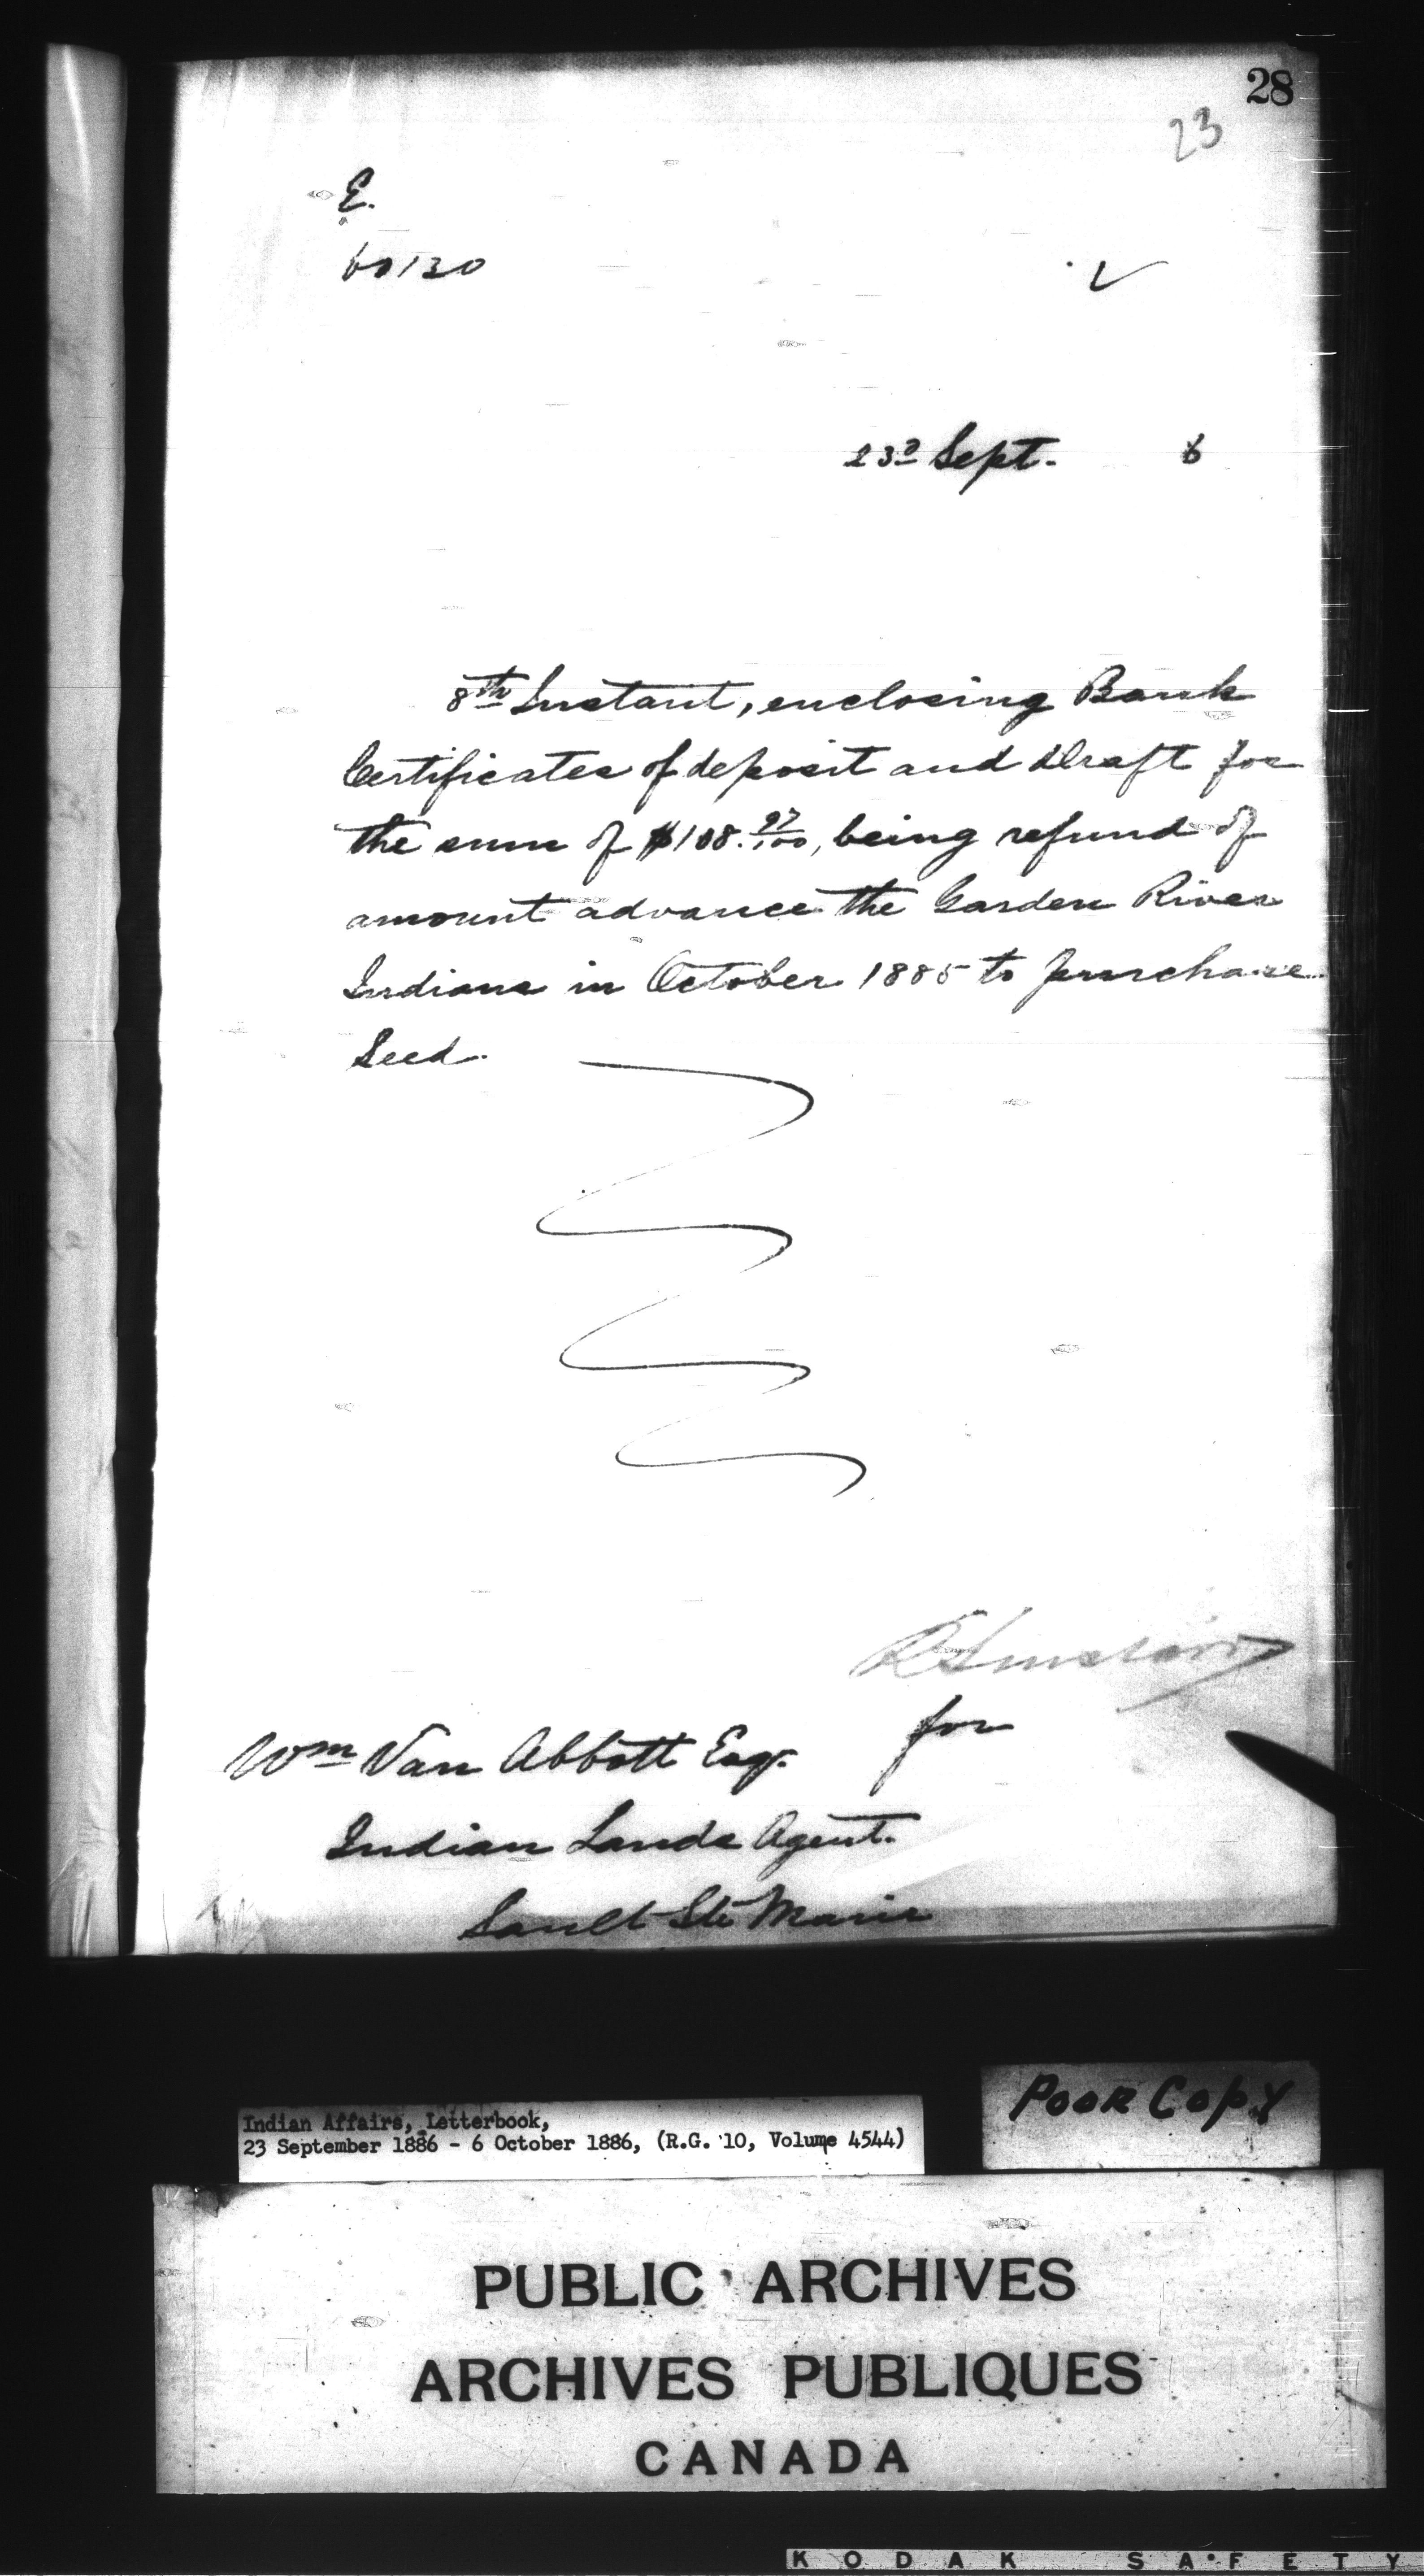 28
23
E.
60130
23d Sept. 6
8th Instant, enclosing Bank
Certificates of deposit and Draft for
the sum of $108.97/100, being refund of
amount advance the Garden River
Indians in October 1885 to purchase
Seed.
R Sinclair
for
Wm Van Abbott Esq.
Indian Lands Agent.
Sault Ste Marie
Poor Copy
Indian Affairs, Letterbook,
23 September 1886 - 6 October 1886, (R.G. 10, Volume 4544)
PUBLIC ARCHIVES
ARCHIVES PUBLIQUES
CANADA
KODAK SAFETY